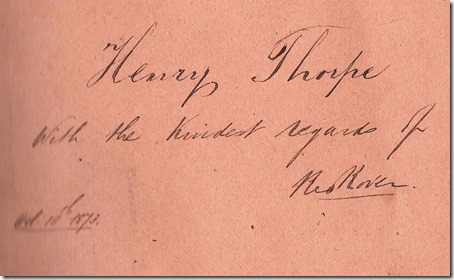 Henry Thorpe
With the Kindest regards of
Red Rover.
Oct. 10th 1873.